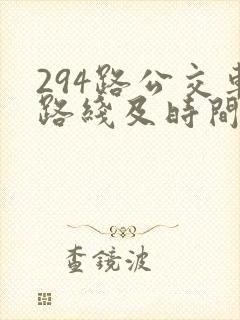 294路公交車
路綫及時間
查鏡波